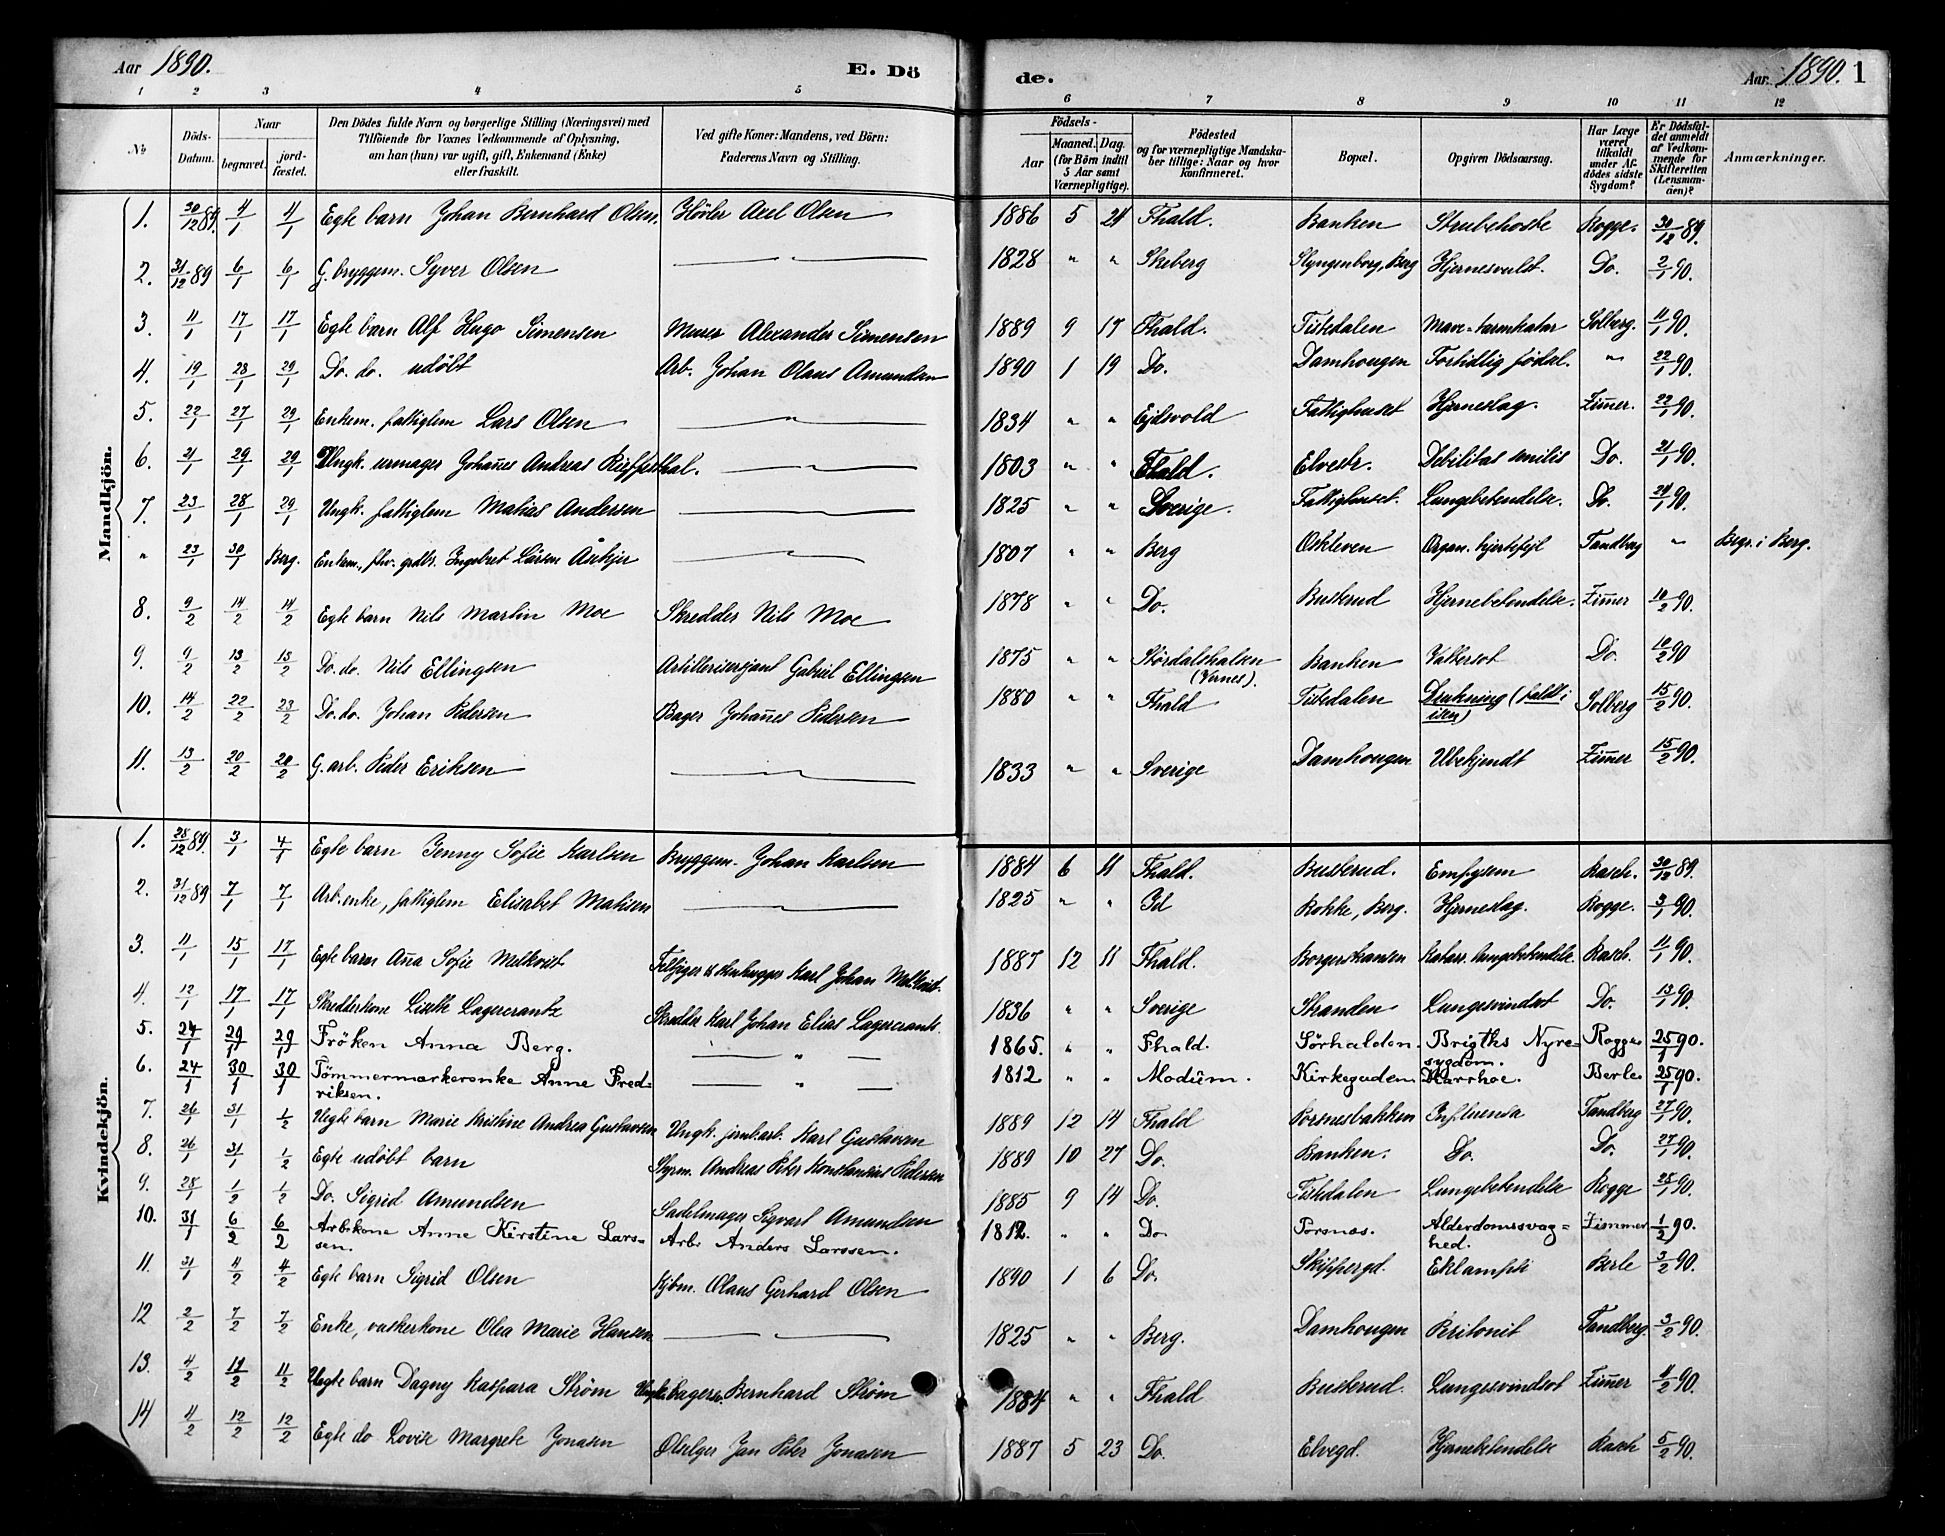 Aar 1890. E. Dö de. Aar 1890. 1
1 2 3 4 5 6 7 8 9 10 11 12
No Döds-Datum. Naar begravet. jordfæstet. Den Dödes fulde Navn og borgerlige Stilling (Næringsvei) med Tilföiende for Voxnes Vedkommende af Oplysning, om han (hun) var ugift, gift, Enkemand (Enke) eller fraskilt. Ved gifte Koner: Mandens, ved Börn: Faderens Navn og Stilling. Födsels- Aar Maaned. Dag. (for Börn indtil 5 Aar samt Værnepligtige). Födested og for værnepligtige Mandskaber tillige: Naar og hvor konfirmeret. Bopæl. Opgiven Dödsaarsag. Har Læge været tilkaldt under Afdödes sidste Sygdom? Er Dödsfaldet anmeldt af Vedkommende for Skifteretten (Lensmanden)? Anmærkninger.
Mandkjön.
1. 30/12 89. 4/1 4/1 Egte barn Johan Bernhard Olsen. Hövler Axel Olsen 1886 5 24 Fhald. Banken Strubehoste Rogge. 30/12 89.
2. 31/12 89 6/1 6/1 G. bryggem. Syver Olsen — " — 1828 " " Skeberg Slyngenborg, Berg Hjernesvulst. Do. 2/1 90.
3. 11/1 17/1 17/1 Egte barn Alf Hugo Simensen Murer Alexander Simensen 1889 9 17 Fhald. Tistedalen Mave-tarmkatar Solberg. 11/1 90.
4. 19/1 28/1 29/1 Do. do. udöbt Arb. Johan Olaus Amundsen 1890 1 19 Do. Damhougen Fortidlig födsel. " 22/1 90.
5. 22/1 27/1 29/1 Enkem. fattiglem Lars Olsen — " — 1834 " " Ejdsvold Fattighuset Hjerneslag. Zimer. 22/1 90.
6. 21/1 29/1 29/1 Ungk. urmager Johanes Andreas — " — 1803 " " Fhald. Elvestr. Debilitas senilis Do. 21/1 90.
7. 23/1 28/1 29/1 Ungk. fattiglem Matias Andersen — " — 1825 " " Sverige. Fattighuset. Lungebetendelse. Do. 24/1 90.
" 23/1 30/1 Berg. Enkem., fhv. grdbr. Ingebret Larsen — " — 1807 " " Berg Oskleven Organ. hjertefejl Tandberg " Begr. i Berg.
8. 9/2 14/2 14/2 Egte barn Nils Martin Moe Skredder Nils Moe 1878 " " Do. Busterud Hjernebetendelse. Zimer 10/2 90.
9. 9/2 13/2 15/2 Do. do. Nils Ellingsen Artillerisersjant Gabriel Ellingsen 1875 " " Stördalshalsen (Vernes). Banken Vattersot Do. 10/2 90
10. 14/2 22/2 23/2 Do. do. Johan Pedersen Bager Johanes Pedersen 1880 " " Fhald Tistedalen Drukning (faldt i isen) Solberg 15/2 90.
11. 13/2 20/2 20/2 G. arb. Peder Eriksen — " — 1833 " " Sverige Damhougen Ubekjendt Zimer 15/2 90.
Kvindekjön.
1. 28/12 89. 3/1 4/1 Egte barn Jenny Sofie Karlsen Bryggem. Johan Karlsen 1884 6 11 Fhald. Busterud. Emfysem Rasch. 30/12 89.
2. 31/12 89 7/1 7/1 Arb.enke, fattiglem Elisabet Matisen — " — 1825 " " Id Rokke, Berg. Hjerneslag. Rogge. 3/1 90.
3. 11/1 15/1 17/1 Egte barn Ana Sofie Melkvist Karl Johan Melkvist. 1887 12 11 Fhald. Borgerskansen Katarr. lungebetendelse. Rasch. 11/1 90.
4. 12/1 17/1 17/1 Skredderkone Lisette Lagercrantz Skredder Karl Johan Elias Lagercrantz. 1836 " " Sverige Stranden Lungesvindsot Do. 13/1 90.
5. 24/1 29/1 29/1 Fröken Anna Berg. — " — 1865. " " Fhald. Sörhalden. Brigths Nyresygdom. Rogge 25/1 90.
6. 24/1 30/1 30/1 Tömmermærkerenke Anne Fredriksen. — " — 1812 " " Modum. Kirkegaden Diarrhoe. Berle 25/1 90.
7. 26/1 31/1 1/2 Uegte barn Marie Kristine Andrea Gustavsen Ungk. jernb.arb. Karl Gustavsen 1889 12 14 Fhald Porsnesbakken Influensa Tandberg 27/1 90.
8. 26/1 31/1 1/2 Egte udöbt barn Styrm. Andreas Peter Konstantius Pedersen 1889 10 27 Do. Banken. Do. Do. 27/1 90.
9. 28/1 1/2 1/2 Do. Sigrid Amundsen Sadelmager Sigvart Amundsen 1885 9 14 Do. Tistedalen Lungebetendelse Rogge 28/1 90.
10. 31/1 6/2 6/2 Arb.kone Anne Kirstine Larssen. Arb. Anders Larssen. 1812. " " Do. Porsnæs. Alderdomssvaghed. Zimmer 1/2 90.
11. 31/1 4/2 4/2 Egte barn Sigrid Olsen Kjbm. Olaus Gerhard Olsen 1890 1 6 Do. Skippergd. Eklampsi Berle 3/2 90.
12 2/2 7/2 7/2 Enke, vaskerkone Olea Marie Hansen — " — 1825 " " Berg. Damhougen Peritonit Tandberg. 3/2 90.
13. 4/2 11/2 11/2 Uegte barn Dagny Kaspara Ström Ungk. bagersv. Bernhard Ström 1884 " " Fhald Busterud. Lungesvindsot Zimer 4/2 90.
14 4/2 12/2 12/2 Egte do Lovise Margrete Jonasen Ölselger Jan Peter Jonasen 1887 5 23 Do. Elvegd. Hjernebetendelse Rasch 5/2 90.